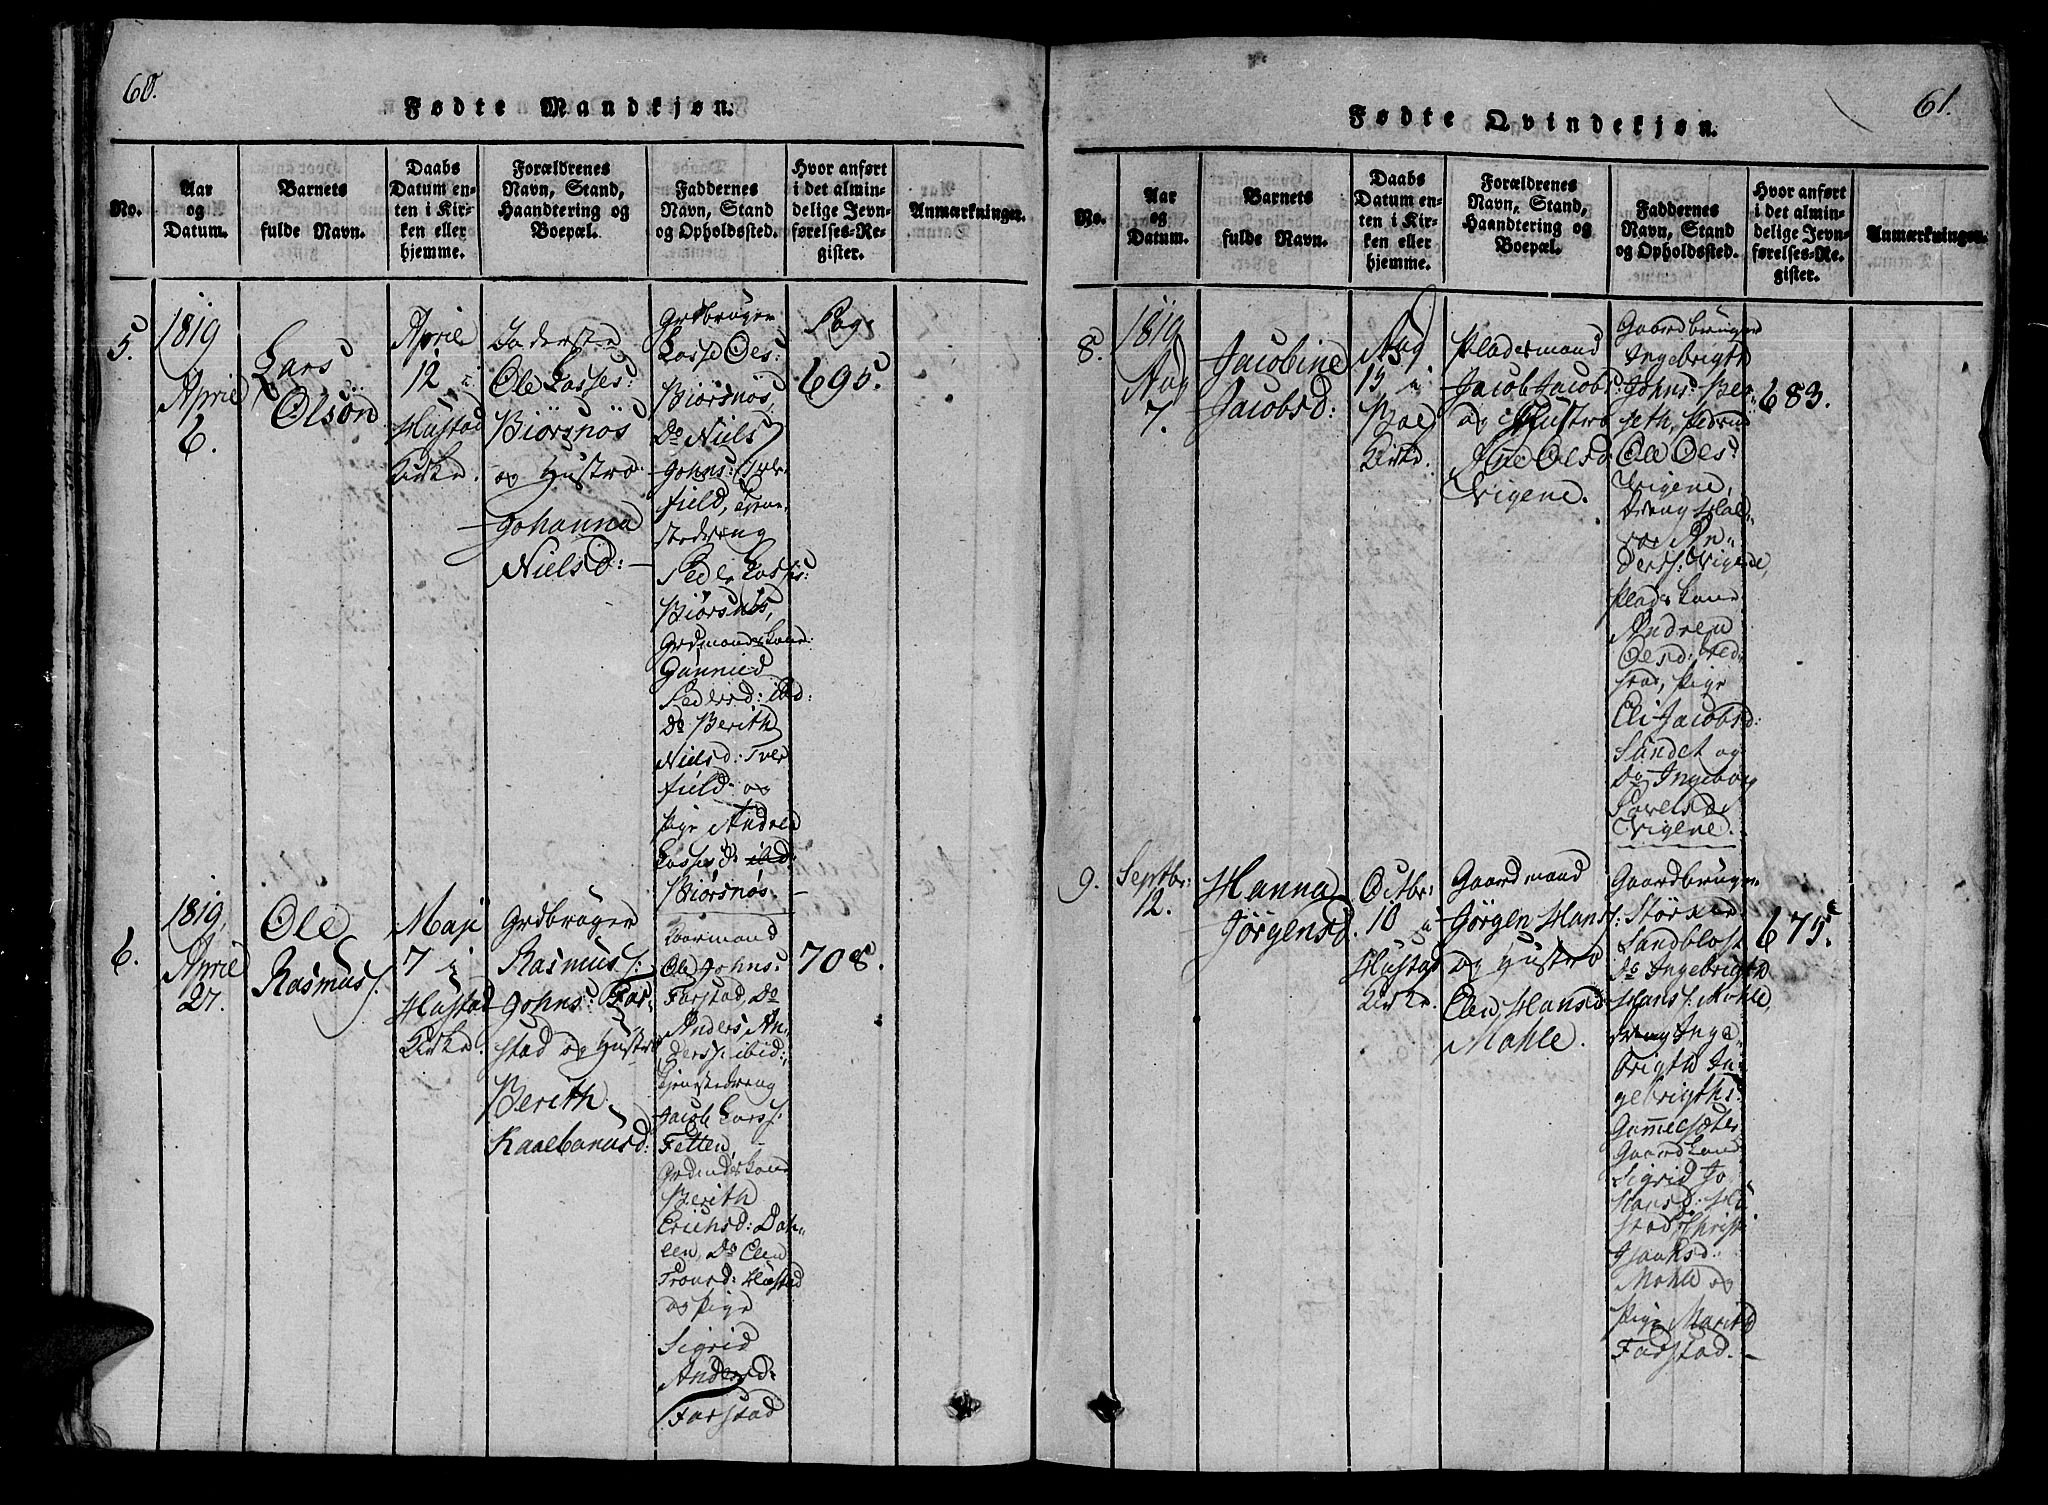 60.
Fødte Mandkjøn.
No.
Aar
og
Datum.
Barnets
fulde Navn.
Daabs
Datum en-
ten i Kir-
ken eller
hjemme.
Forældrenes
Navn, Stand,
Haandtering og
Boepæl.
Faddernes
Navn, Stand
og Opholdssted.
Hvor anført
i det almin-
delige Jevn-
førelses-Re-
gister.
Anmærkninger.
5.
1819
April
6.
Lars
Olsön
April
12 i
Hustad
Kirke.
Ole Lasses:
Biörsnös
og Hustro
Johanna
Nielsd: –
Grdbruger
Lasse Oes:
Biörsnös,
Do Niels
Johns: Tver
field,
Peder Lasses:
Biörsnös,
Grdmandskone
Gunnild
Pedersd: ibd:
Do Berith
Nielsd: Tver
field og
Pige Andrea
Lassesd: ibd:
Biörsnös. –
Pag:
695.
6.
1819,
April
27.
Ole
Rasmuss.
Maji
7 i
Hustad
Kirke.
Grdbruger
Rasmus
Johns: Far-
stad og Hustro
Berith
Kaalbanusd:
Ole Johns:
Farstad, Do
Anders An-
derss: ibid:,
Tjenstedreng
Jacob Larss:
Fetten,
Grdmdskone
Berith
Erichsd: Dah-
len, Do Elen
Tronsd: Hustad
og Pige
Sigrid
Andersd:
Farstad
708.
61.
Fødte Qvindekjøn.
No.
Aar
og
Datum.
Barnets
fulde Navn.
Daabs
Datum en-
ten i Kir-
ken eller
hjemme.
Forældrenes
Navn, Stand,
Haandtering og
Boepæl.
Faddernes
Navn, Stand
og Opholdssted.
Hvor anført
i det almin-
delige Jevn-
førelses-Re-
gister.
Anmærkninger.
8.
1819
Aug
7.
Jacobine
Jacobsd:
Aug
15 i
Boe
Kirke.
Pladsmand
Jacob Jacobs:
og Hustro
Ane Olsd
Vigene.
Gaardbruger
Ingebrigth
Johns:
seth,
Ole Oes:
Vigene,
Dreng Hal-
vor An-
derss: Vigene,
Pladskone
Andrea
Oesd:
Pige
Eli Jacobsd:
Sundet og
Do Ingeborg
Povelsd
Vigene.
683.
9.
Septbr:
12.
Hanna
Jörgensd.
Octbr:
10 i
Hustad
Kirke.
Gaardmand
Jörgen Hans:
og Hustro
Elen Hansd
Mohle.
Gaardbruger
Störker
Sandblost
Do Ingebrigth
Hanss: Mohle,
Dreng Inge-
brigth In-
gebrigths:
Gummelsæter
Gaardkone
Sigrid Jo
hansd: Hu
stad, Christi
Isaaksd:
Mohle og
Pige Marith
Farstad. –
675.